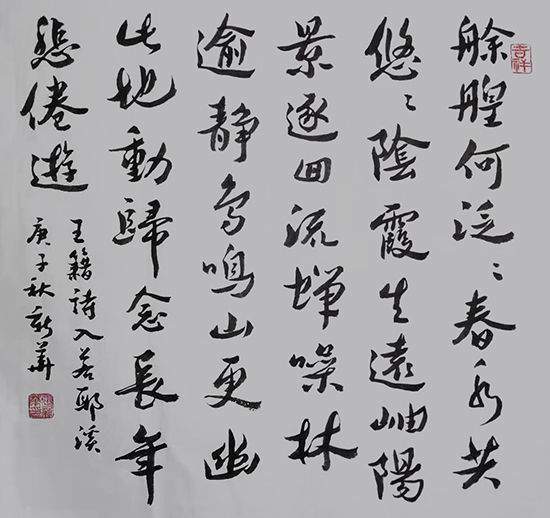 吉祥
艅艎何泛〻春水共
悠〻陰霞生遠岫陽
景逐回流蟬噪林
逾靜鳥鳴山更幽
此地動歸念長年
悲倦遊
王籍詩入若耶溪
庚子秋新華